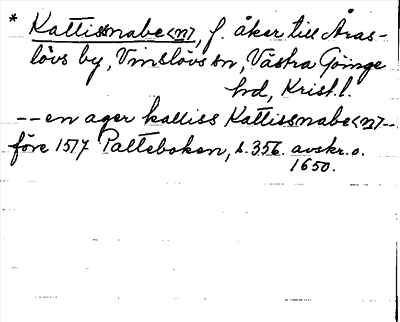 * Kattissnabe<n>, f. åker till Åras-
lövs by, Vinslövs sn, Västra Göinge
hd, Krist.l.
-- en ager kalliss Kattissnabe<n> --
före 1517 Palteboken, s. 356. avskr. o.
1650.